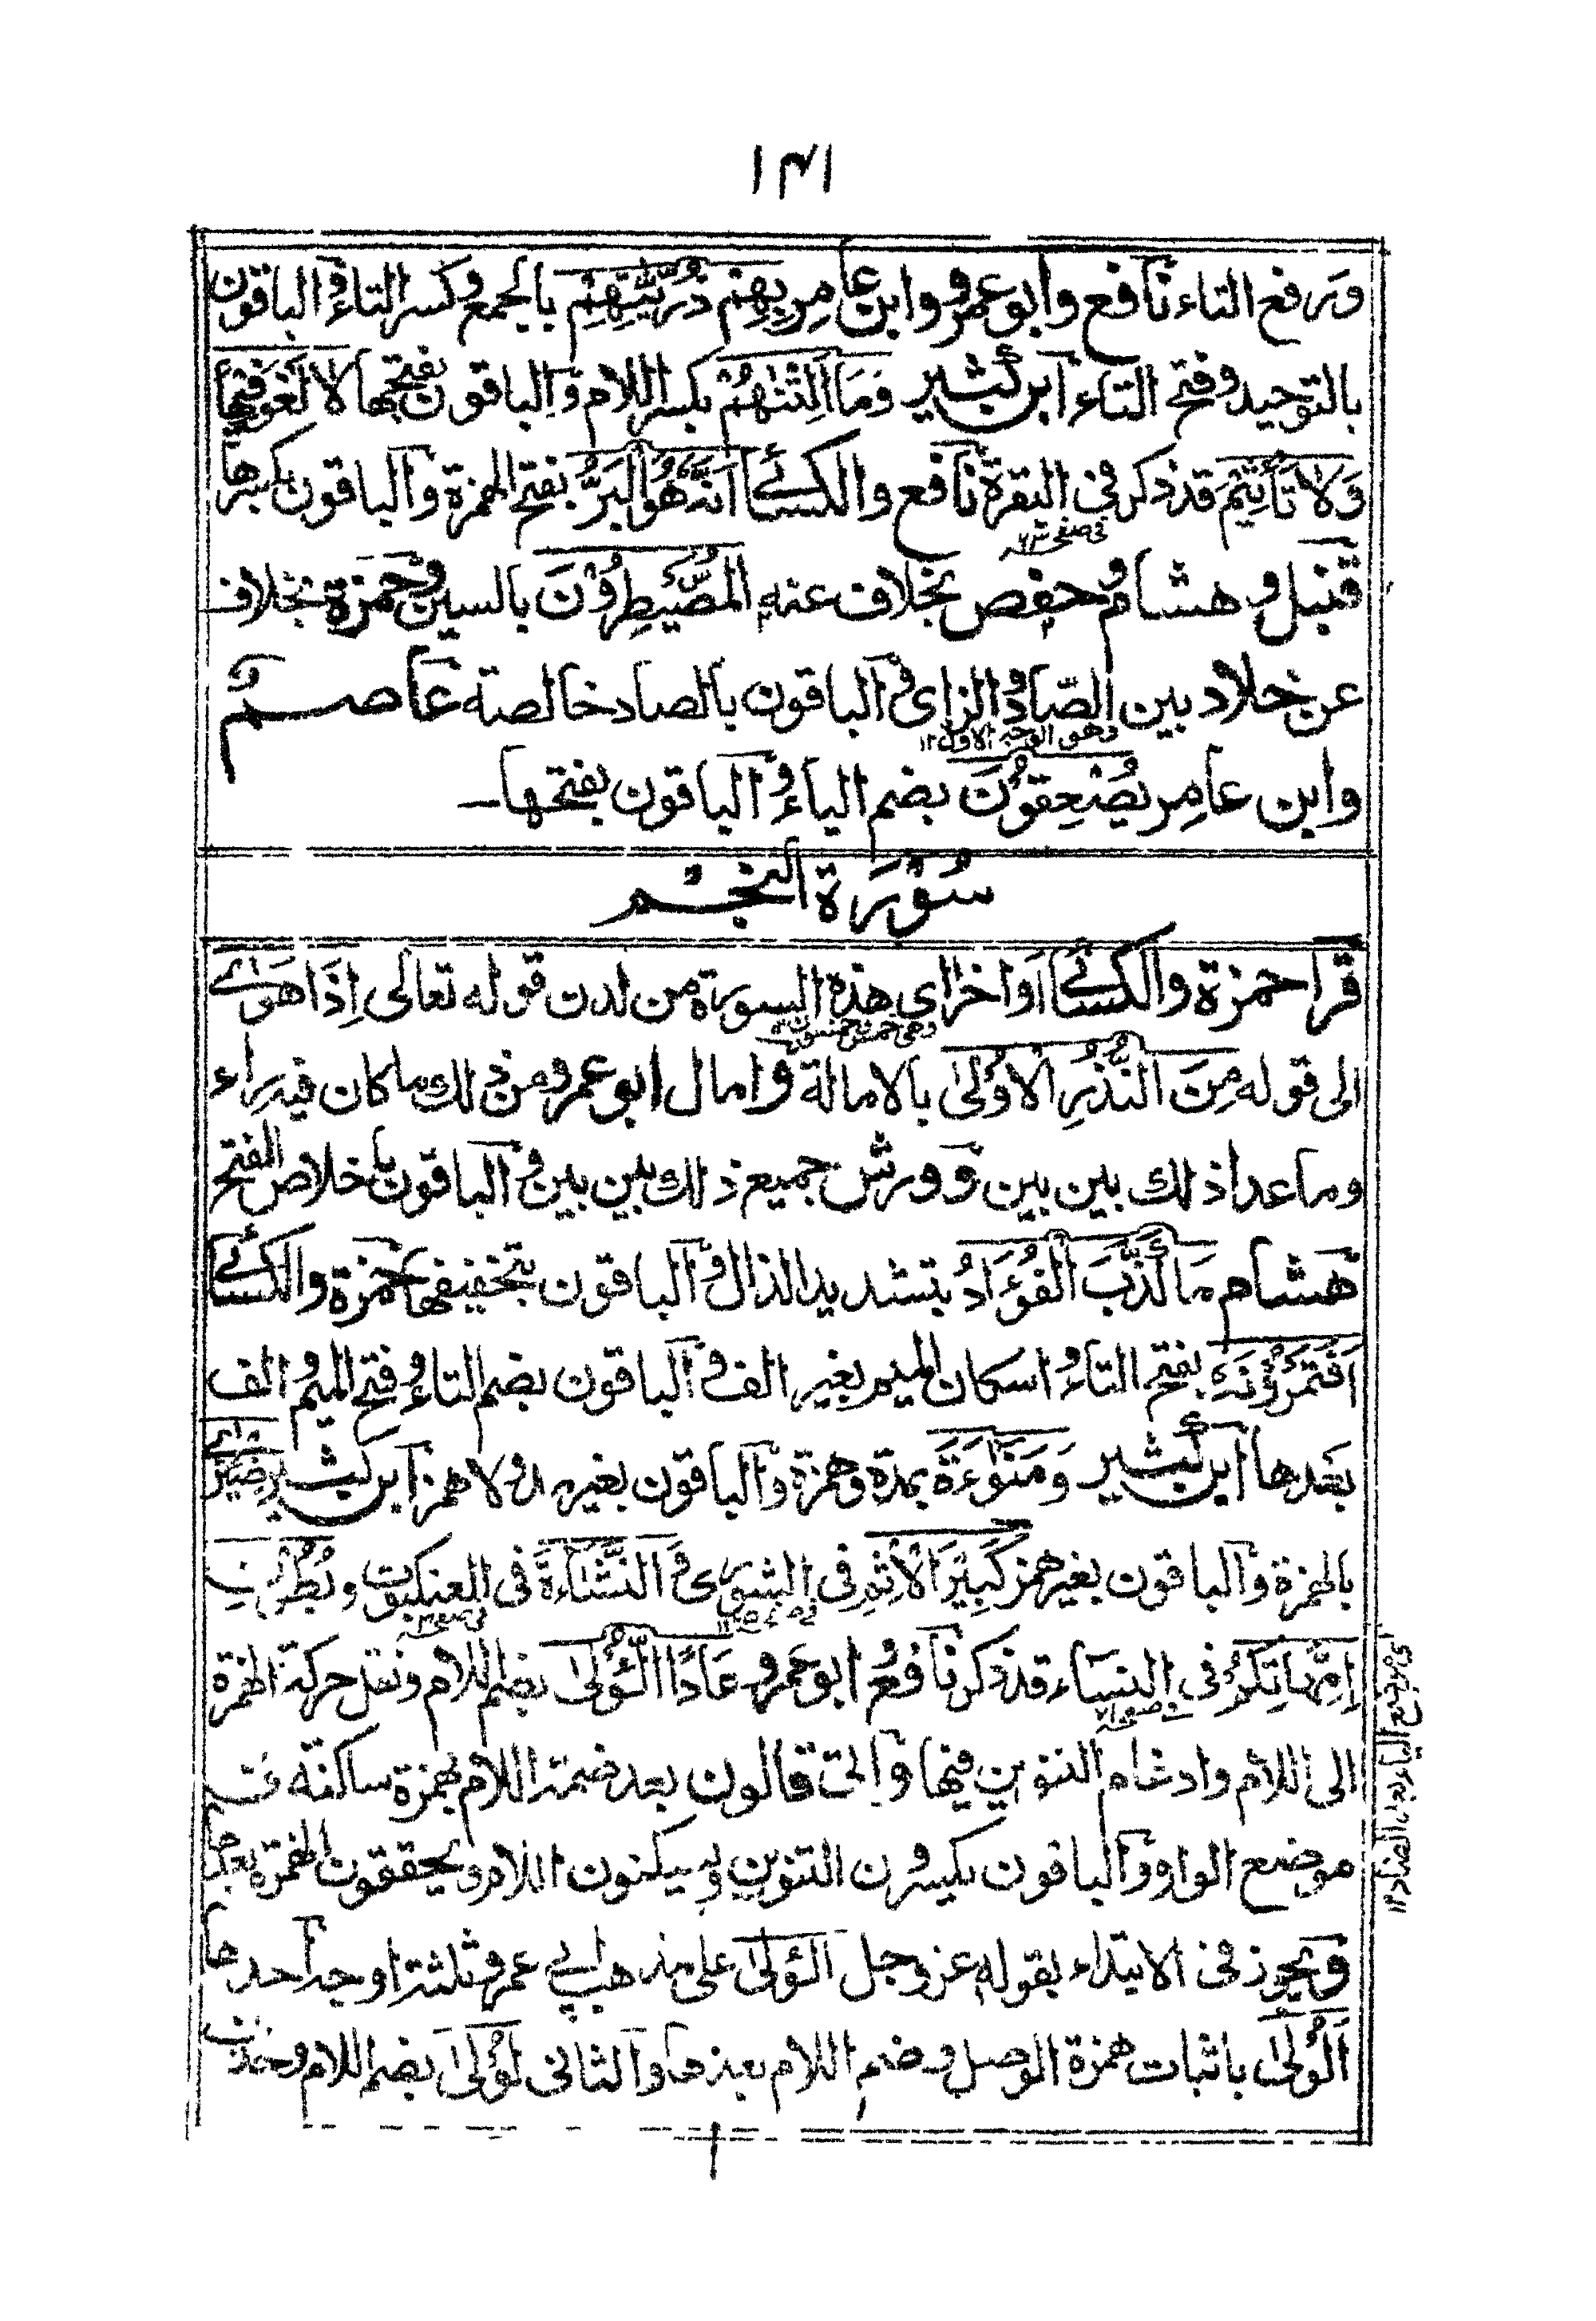 ١٣١
ورفع التاء نافع وابو عمرو وابن عامر بِهِمْ ذُرِّيّٰتِهِمْ بالجمع وكسر التاء والباقون
بالتوحيد وفتح التاء ابن كثير وَمَا اَلِتْنٰهُمْ بكسر اللام والباقون بفتحها لا لَغْوَ فِيْهَا
وَلَا تَأْثِيْمَ قد ذكر فى البقرة نافع والكسائے اَنَّهٗ هُوَ الْبَرُّ بفتح الهمزة والباقون بكسرها
فى صفحه ٧٣
قنبل وهشام وحفص بخلاف عنه الْمُصَۜيْطِرُوْنَ بالسين وحمزة بخلاف
عن خلاد بين الصاد والزاى والباقون بالصاد خالصة عاصم
وهو الوجه الاول ١٢
وابن عامر يُصْعَقُوْنَ بضم الياء والباقون بفتحها—
سُوْرَة النجْم
قرأ حمزة والكسائے اواخر اى هذه السورة من لدن قوله تعالى اِذَا هَوٰے
وهى خمس وخمسون ١٢
الى قوله مِنَ النُّذُرِ الْاُوْلٰى بالامالة وامال ابو عمرو من ذلك ما كان فيه راء
وما عدا ذلك بين بين وورش جميع ذلك بين بين والباقون باخلاص الفتح
هشام مَا كَذَّبَ الْفُؤَادُ بتشديد الذال والباقون بتخفيفها حمزة والكسائے
اَفَتَمْرُوْنَهٗ بفتح التاء واسكان الميم بغير الف والباقون بضم التاء وفتح الميم والف
بعدها ابن كثير وَمَنٰوءَةَ بمدة وهمزة والباقون بغير مد ولا همز ابن كثير ضِئْزٰے
بالهمزة والباقون بغير همز كَبِيْرَ الْاِثْمِ فى الشورى وَالنَّشْاَةَ فى العنكبوت و بُطُوْنِ
اِمِّهٰتِكُمْ فى النساء قد ذكر نافع وابو عمرو عَادًا الُّوْلٰى بضم اللام ونقل حركة الهمزة
الى اللام وادغام التنوين فيها واتى قالون بعد ضمة اللام بهمزة ساكنة فى
موضع الواو والباقون يكسرون التنوين ويسكنون اللام ويحققون الهمزة بعدها
ويجوز فى الابتداء بقوله عز وجل الُؤلٰى على مذهب ابى عمرو ثلثة اوجه احدها
اَلُوْلٰى باثبات همزة الوصل وضم اللام بعدها والثانى لُوْلٰى بضم اللام وحذف